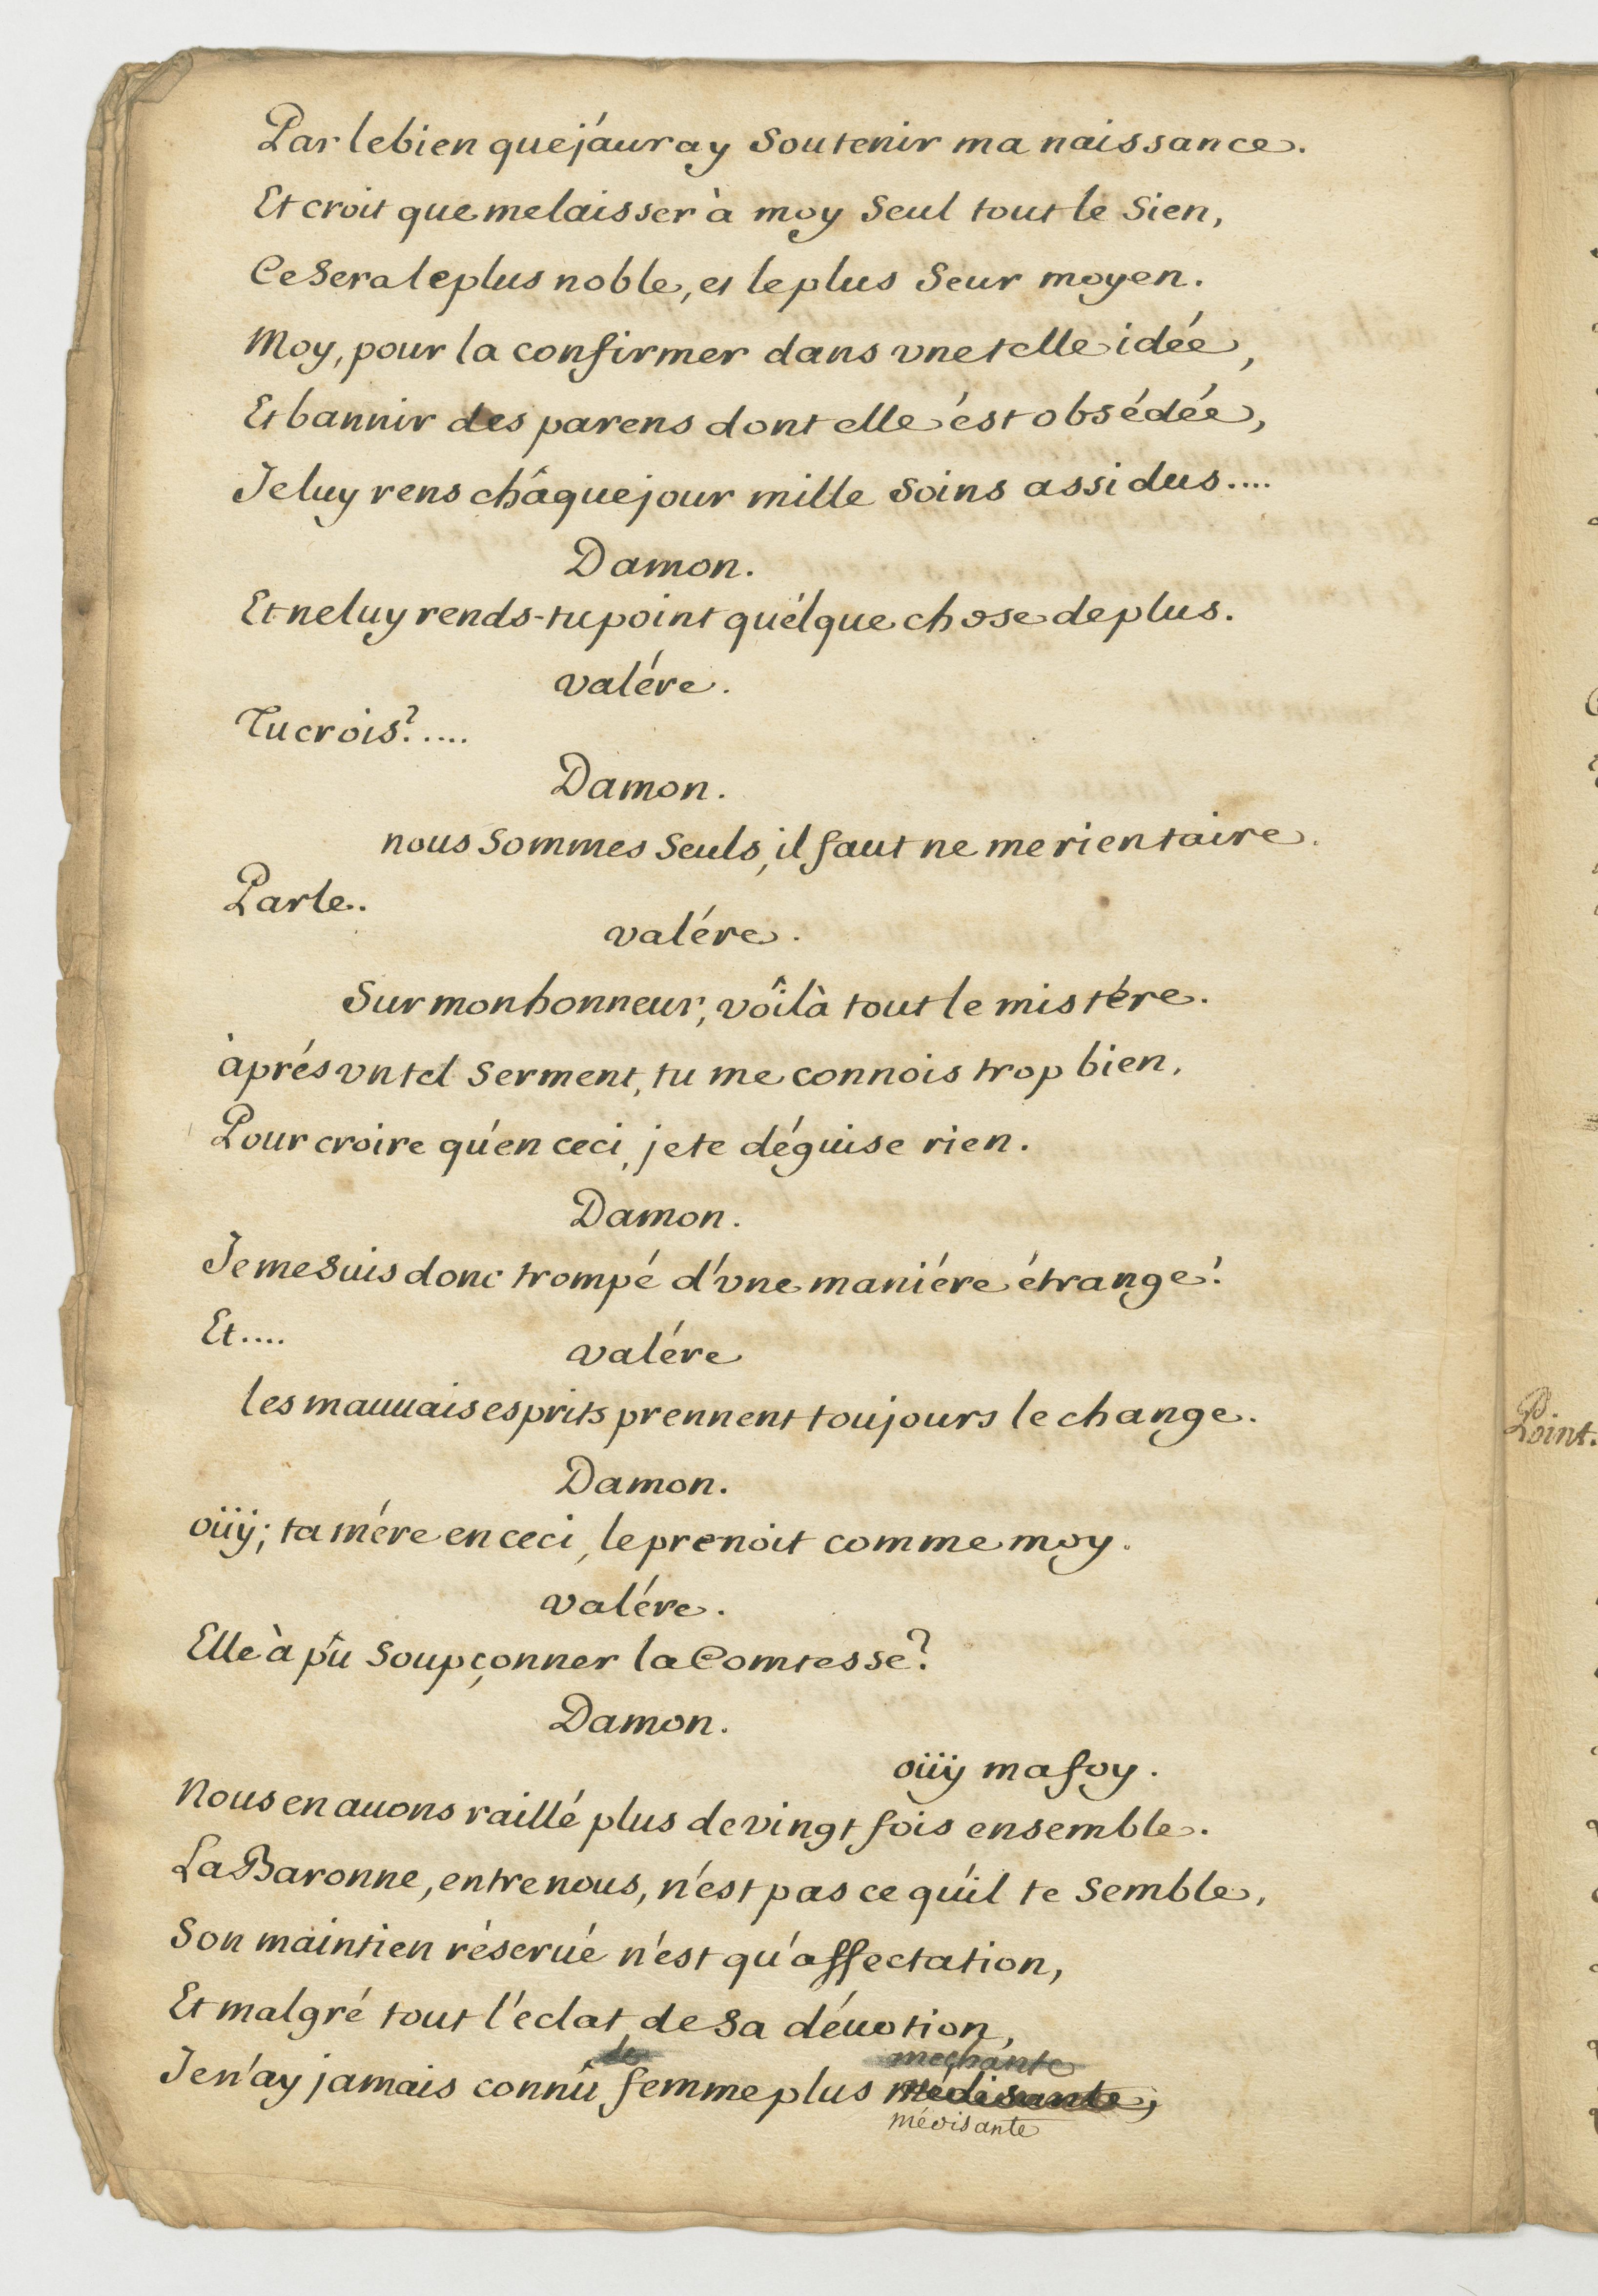 Par le bien que j'auray Soutenir ma naissance.
Et croit que me laisser à moy Seul tout le Sien,
Ce Sera le plus noble, et le plus Seur moyen.
Moy, pour la confirmer dans vne telle idée,
Et bannir des parens dont elle ést obsédée,
Je luy rens châque jour mille Soins assidus....
Damon.
Et ne luy rends-tu point quélque chose de plus.
valére.
Tu crois?.....
Damon.
nous Sommes Seuls, il faut ne me rien taire.
Parle.
valére.
Sur mon honneur, vôilà tout le mistére.
àprés vn tel Serment, tu me connois trop bien,
Pour croire qu'en ceci, je te déguise rien.
Damon.
Je me Suis donc trompé d'vne maniére étrange!
Et....
valére
les mauuais esprits prennent toujours le change.
Damon.
oüÿ; ta mére en ceci, le prenoit comme moy.
valére.
Elle à pû Soupçonner la Comtesse?
Damon.
oüÿ ma foy.
Nous en auons raillé plus de vingt fois ensemble.
La Baronne, entre nous, n'est pas ce qu'il te Semble,
Son maintien réserué n'est qu'affectation,
Et malgré tout l'eclat de Sa déuotion,
de mechante
Je n'ay jamais connû femme plus médisante,
médisante
Point.